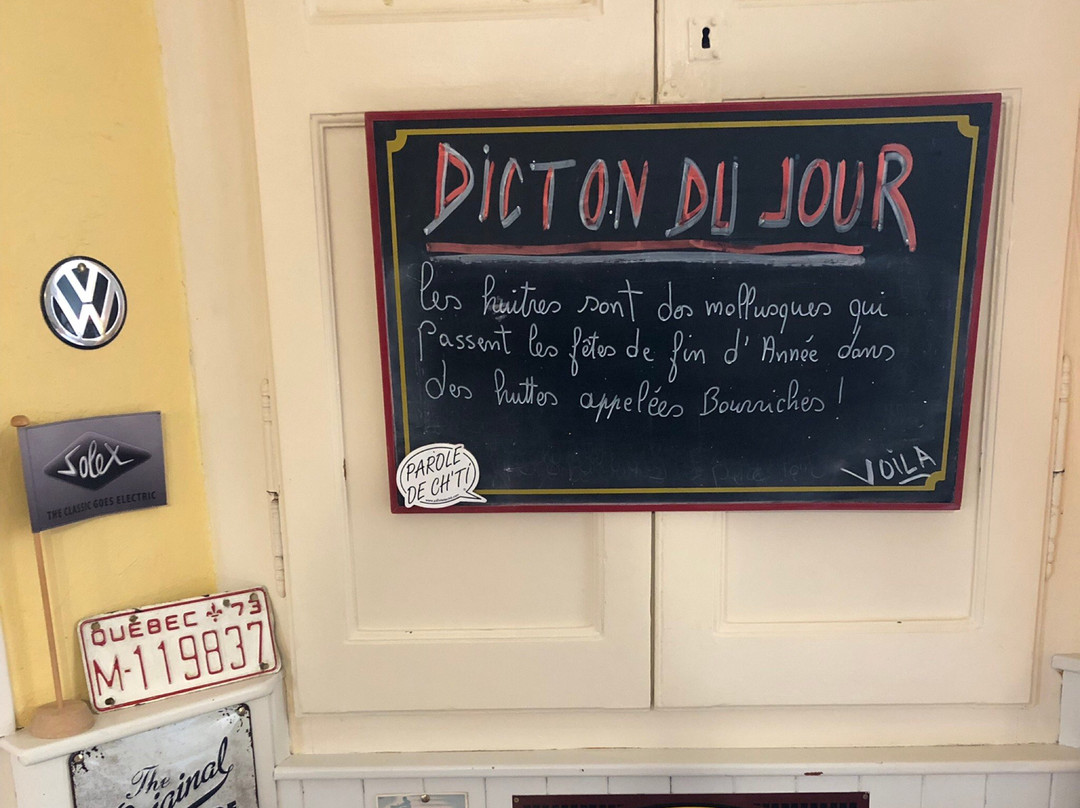 DICTON DU JOUR
les huitres sont dos mollusques qui
passent les fêtes de fin d'Année dans
des huttes appelées Bourriches !
VOILA
PAROLE
DE CH'TI
VW
Solex
THE CLASSIC GOES ELECTRIC
QUÉBEC 73
M-119837
The
Original